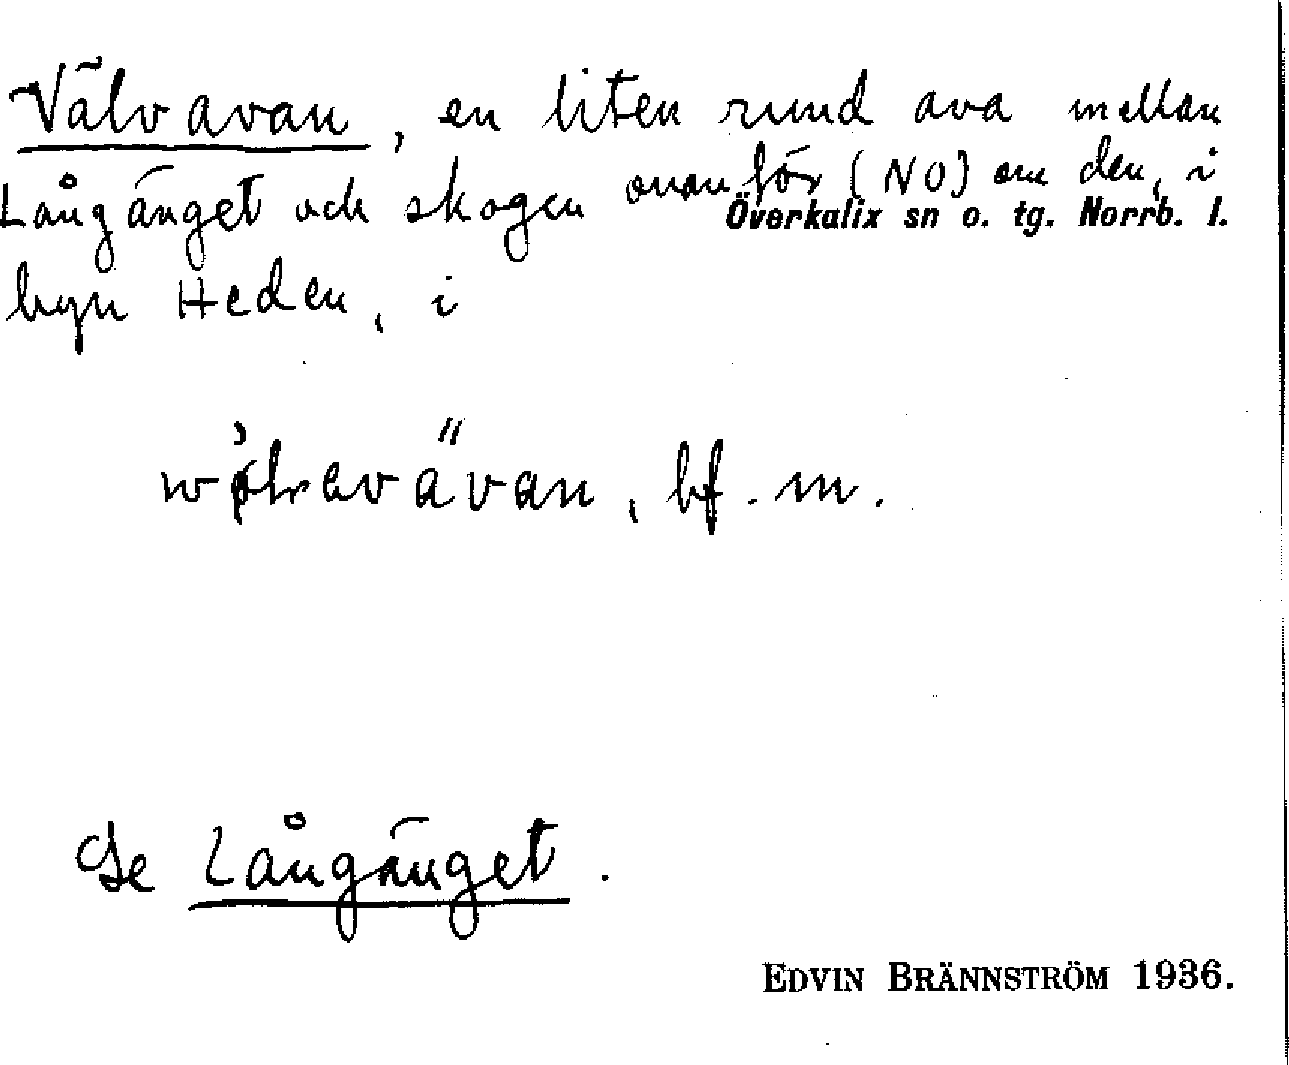 Välvavan, en liten rund ava mellan
Långänget och skogen ovanför (NO) om den, i
Överkalix sn o. tg. Norrb. l.
byn Heden, i
bf. m.
Se Långänget.
EDVIN BRÄNNSTRÖM 1936.